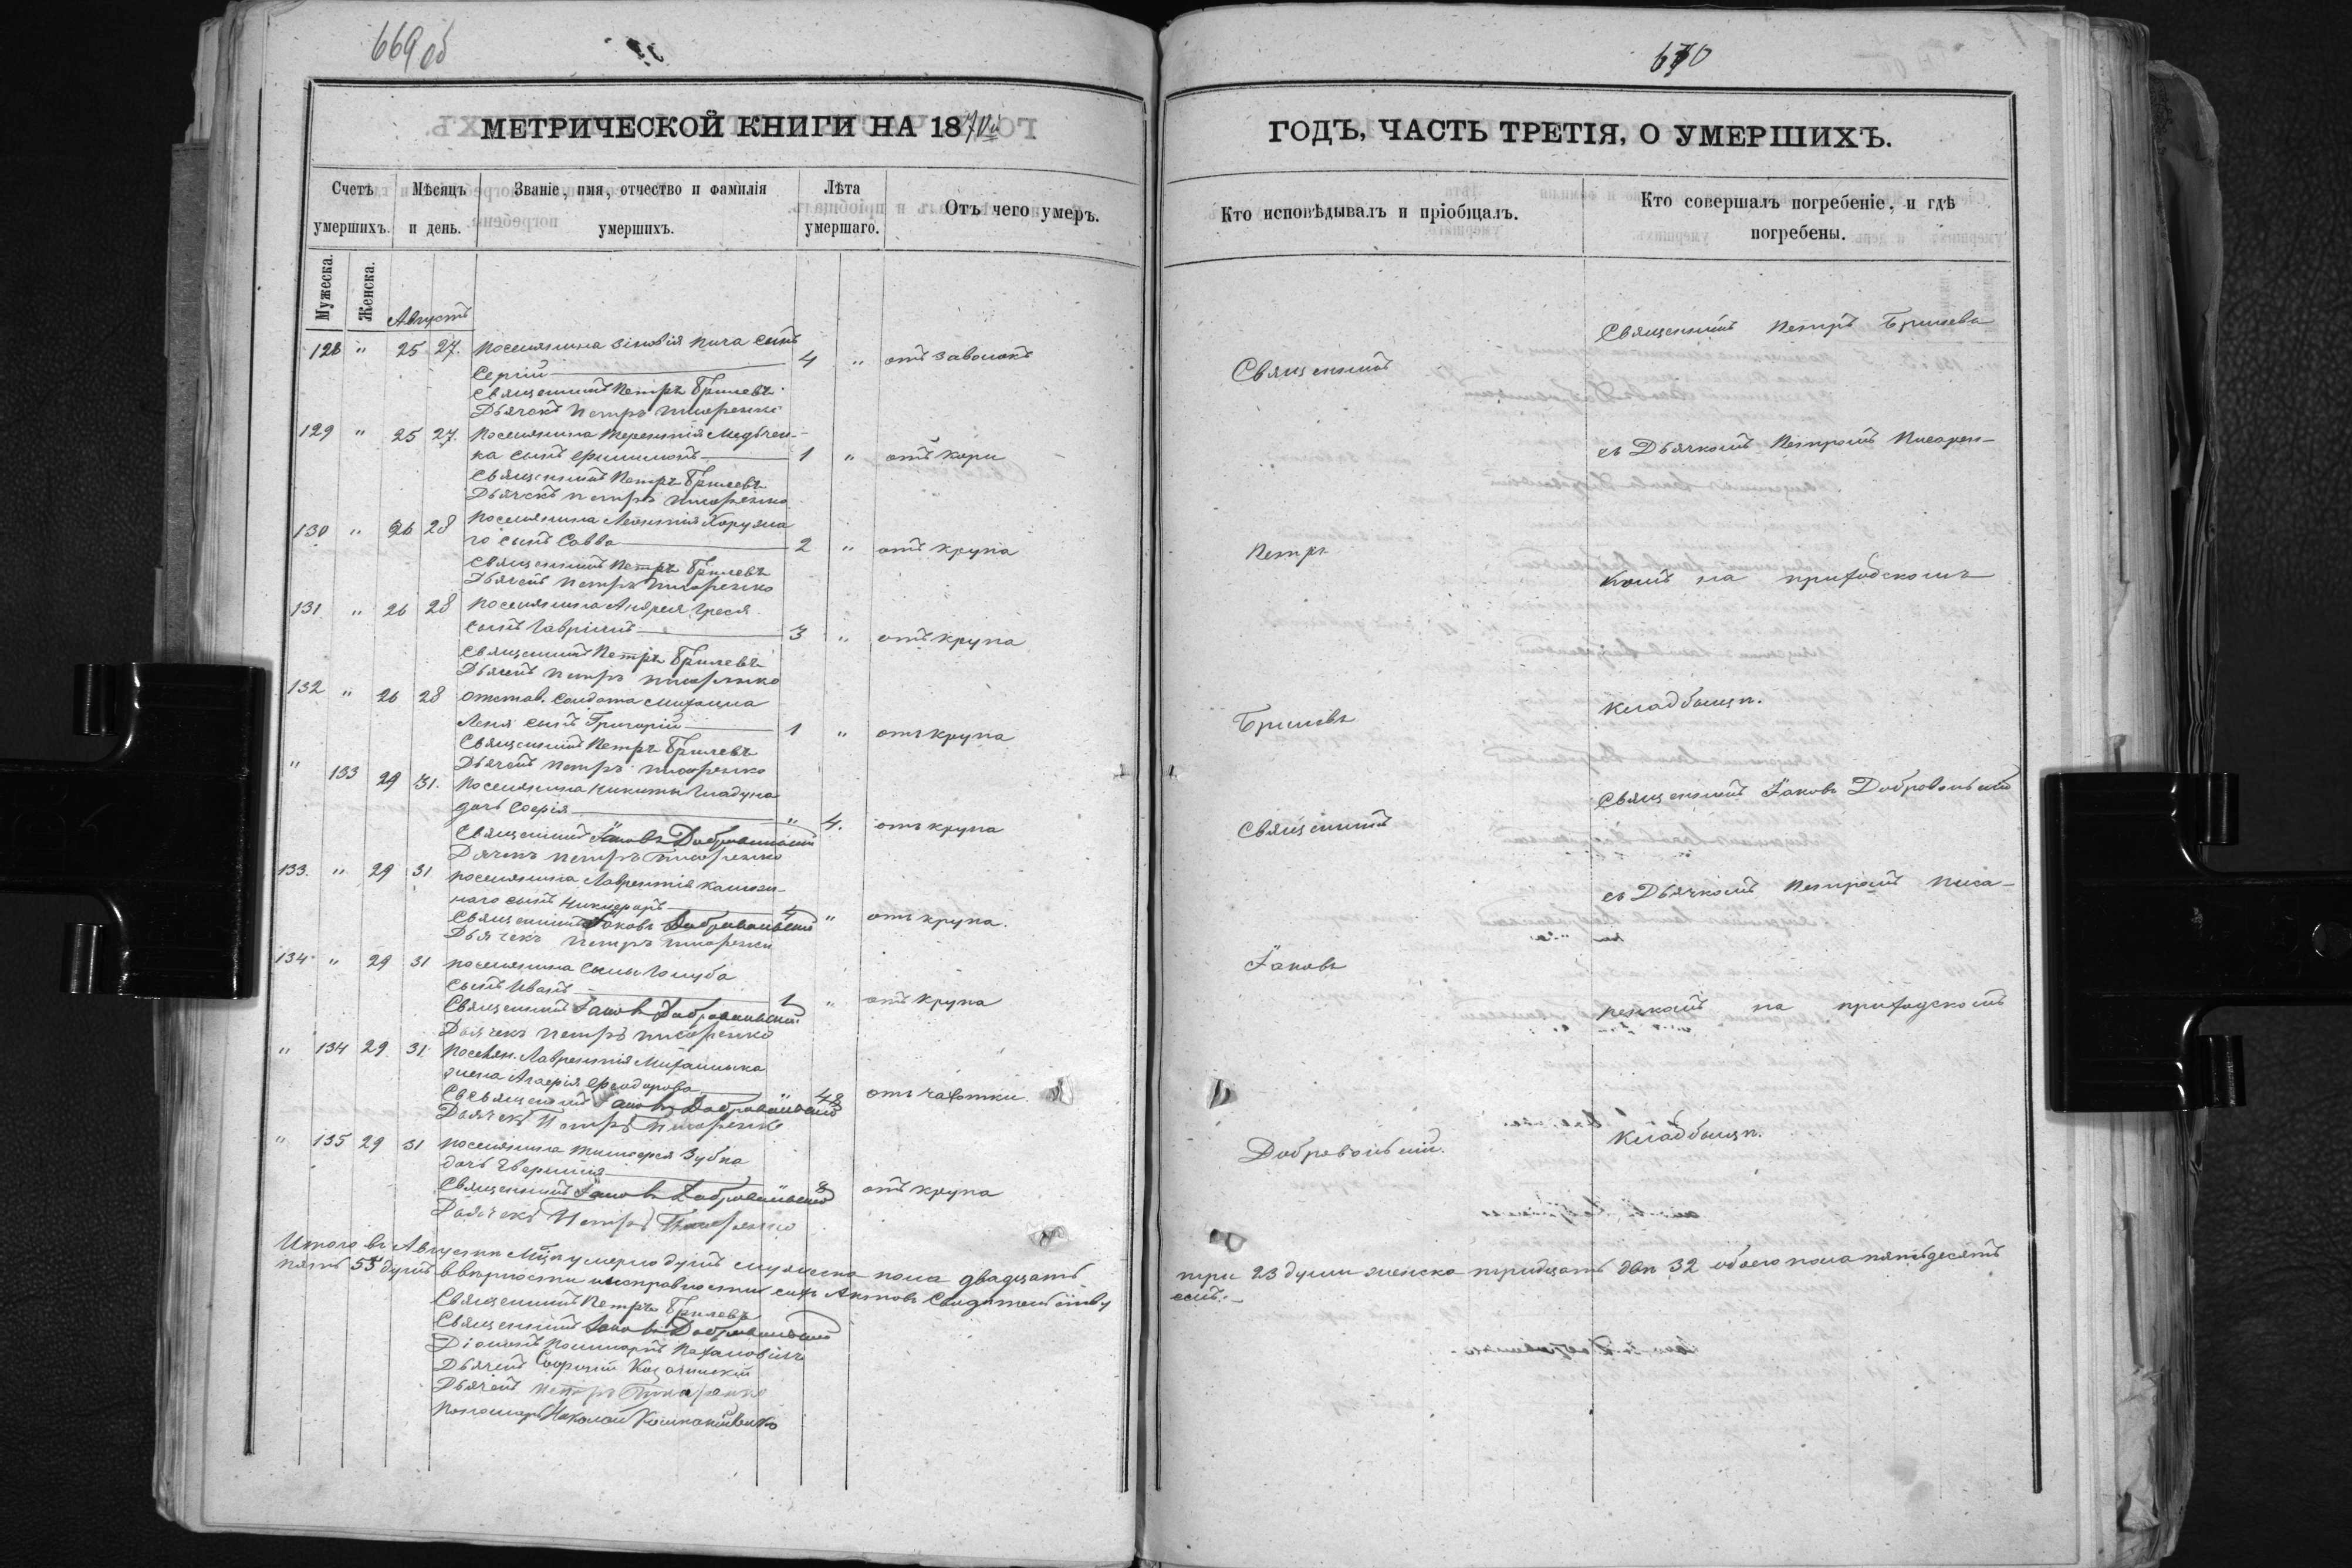 669 об
МЕТРИЧЕСКОЙ КНИГИ НА 187
Счетъ умершихъ.
Мѣсяцъ и день.
Званіе, имя, отчество и фамилія умершихъ.
Лѣта умершаго.
Отъ чего умеръ.
Мужеска.
Женска.
Августъ
128 " 25 27. Поселянина Зиновія Пича сынъ
Сергій 4 " отъ заволокъ
Священникъ Петръ Брилевъ
Дьячокъ Петръ Писаренко
129 " 25 27. Поселянина Терентія Медвчен-
ка сынъ Филимонъ 1 " отъ кори
Священникъ Петръ Брилевъ
Дьячокъ Петръ Писаренко
130 " 26 28 Поселянина Леонтія Хоружа
го сынъ Савва 2 " отъ крупа
Священникъ Петръ Брилевъ
Дьячекъ Петръ Писаренко
131 " 26 28 Поселянина Андрея Греся
сынъ Гавріилъ 3 " отъ крупа
Священникъ Петръ Брилевъ
Дьячекъ Петръ Писаренко
132 " 26 28 Отстав. Солдата Михаила
Леня сынъ Григорій 1 " отъ крупа
Священникъ Петръ Брилевъ
Дьячекъ Петръ Писаренко
" 133 29 31. Поселянина Никиты Гладуна
дочь Софія " 4. отъ крупа
Священникъ Іаковъ Добровольскій
Дячекъ Петръ Писаренко
133. " 29 31 Поселянина Лаврентія
наго сынъ Никифоръ " отъ крупа.
Священникъ Іаковъ Добровольскій
Дьячекъ Петръ Писаренко
134 " 29 31 Поселянина Голуба
сынъ Иванъ 1 " отъ крупа
Священникъ Іаковъ Добровольскій
Дьячекъ Петръ Писаренко
" 134 29 31 Поселян. Лаврентія Михайлика
жена Агафія Феодорова " 48 отъ чахотки.
Священникъ Іаковъ Добровольскій
Дьячекъ Петръ Писаренко
" 135 29 31 Поселянина Тимофея Зубка
дочь 8 отъ крупа
Священникъ Іаковъ Добровольскій
Дьячекъ Петръ Писаренко
Итого въ Августѣ Мцѣ умерло душъ мужеска пола двадцать
пять 55 душъ ввѣрности и исправности сихъ Актовъ Свидѣтельствую
Священникъ Петръ Брилевъ
Священникъ Іаковъ Добровольскій
Діаконъ
Дьячекъ Софроній
Дьячекъ Петръ Писаренко
Пономарь Николай
670
ГОДЪ, ЧАСТЬ ТРЕТІЯ, О УМЕРШИХЪ.
Кто исповѣдывалъ и пріобщалъ.
Кто совершалъ погребеніе, и гдѣ погребены.
Священникъ
Петръ
Брилевъ
Священникъ
Іаковъ
Добровольскій.
Священникъ Петръ Брилевъ
съ Дьячкомъ Петромъ Писарен-
комъ на приходскомъ
кладбищѣ.
Священникъ Іаковъ Добровольскій
съ Дьячкомъ Петромъ Писа-
ренкомъ на приходскомъ
кладбищѣ.
три 23 души женска тридцать двѣ 32 обоего пола пятьдесятъ